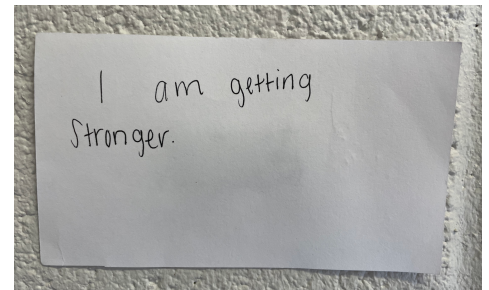 I am getting
Stronger.